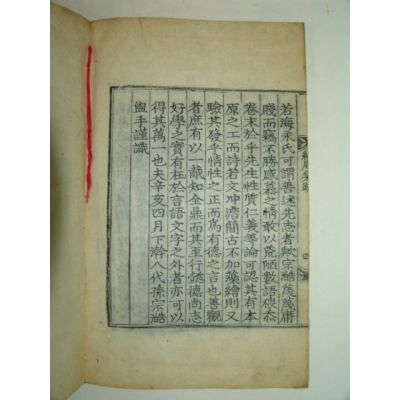 若海永氏可謂善述先志者歟宗皓蔑蔑庸
賤而竊不勝感慕之情敢以荒陋數語猥忝
卷末於乎先生性質仁義等論可認其有本
原之工而詩若文冲澹簡古不加藻繪則又
驗其發乎情性之正而爲有德之言也善觀
者庶有以一臠知全鼎而其至行懿德尚志
好學之實有在於言語文字之外者亦可以
得其萬一也夫辛亥四月下澣八代孫宗皓
盥手謹識